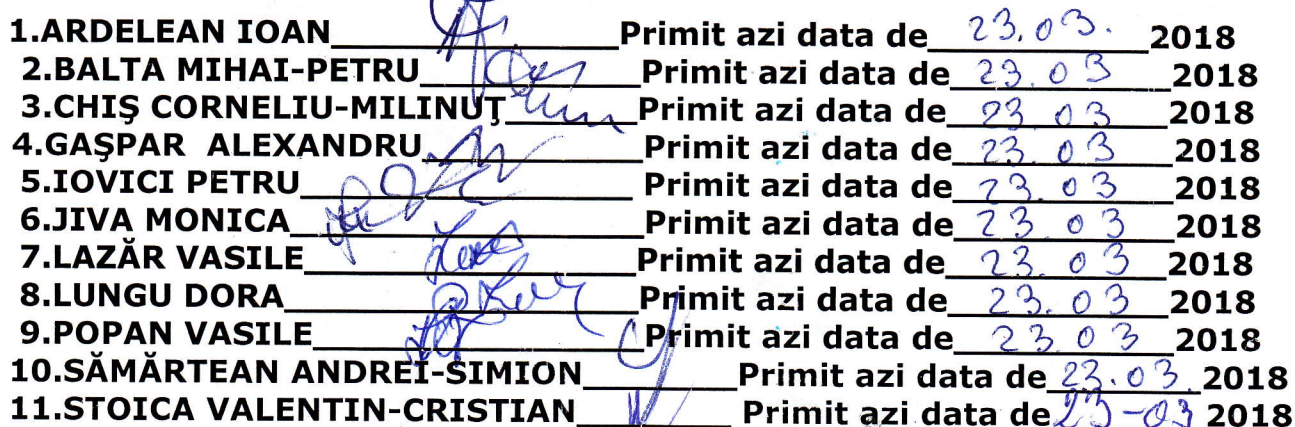 1.ARDELEAN IOAN____________________Primit azi data de 23.03. 2018
2.BALTA MIHAI-PETRU_______________Primit azi data de 23.03 2018
3.CHIŞ CORNELIU-MILINUŢ_________Primit azi data de 23 03 2018
4.GAŞPAR ALEXANDRU_______________Primit azi data de 23.03 2018
5.IOVICI PETRU_______________________Primit azi data de 23.03 2018
6.JIVA MONICA_______________________Primit azi data de 23.03 2018
7.LAZĂR VASILE______________________Primit azi data de 23.03 2018
8.LUNGU DORA_______________________Primit azi data de 23.03 2018
9.POPAN VASILE_____________________Primit azi data de 23 03 2018
10.SĂMĂRTEAN ANDREI-SIMION__________Primit azi data de 23.03. 2018
11.STOICA VALENTIN-CRISTIAN__________ Primit azi data de 23-03 2018